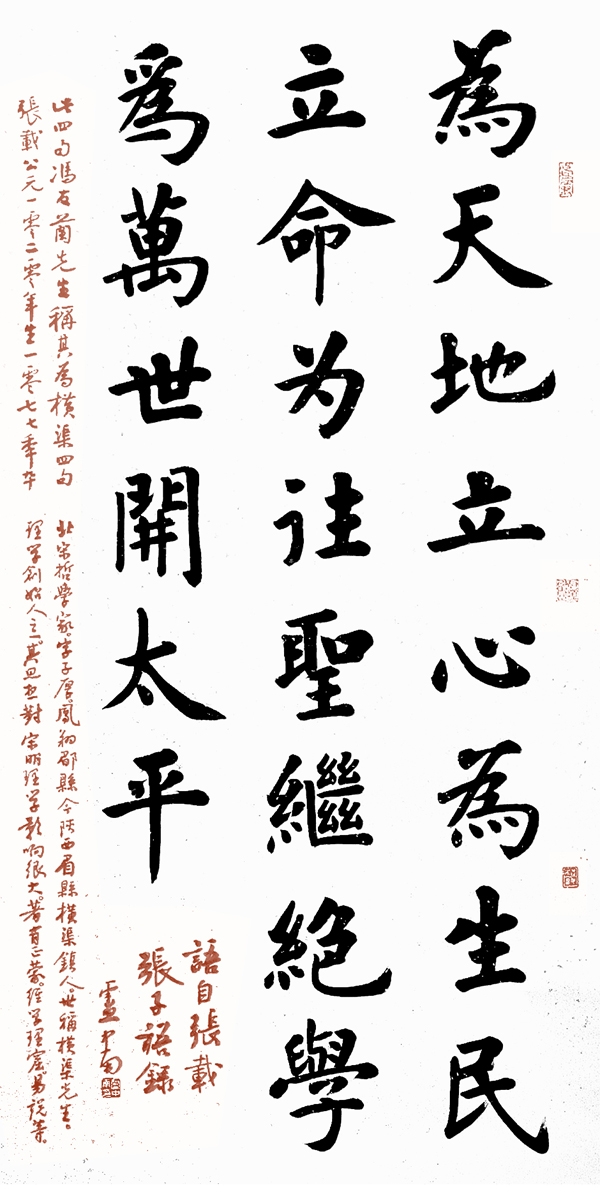 為天地立心為生民
立命为往聖繼絶學
爲萬世開太平
語自張載
張子語録
盧中南
此四句馮友蘭先生稱其為橫渠四句
張載公元一零二零年生一零七七季卒
北宋哲學家。字子厚鳳翔郿縣今陝西眉縣橫渠鎮人。世稱橫渠先生。
理学創始人之一。其思想對宋明理学影响很大。著有正蒙。经学理窟易说等。